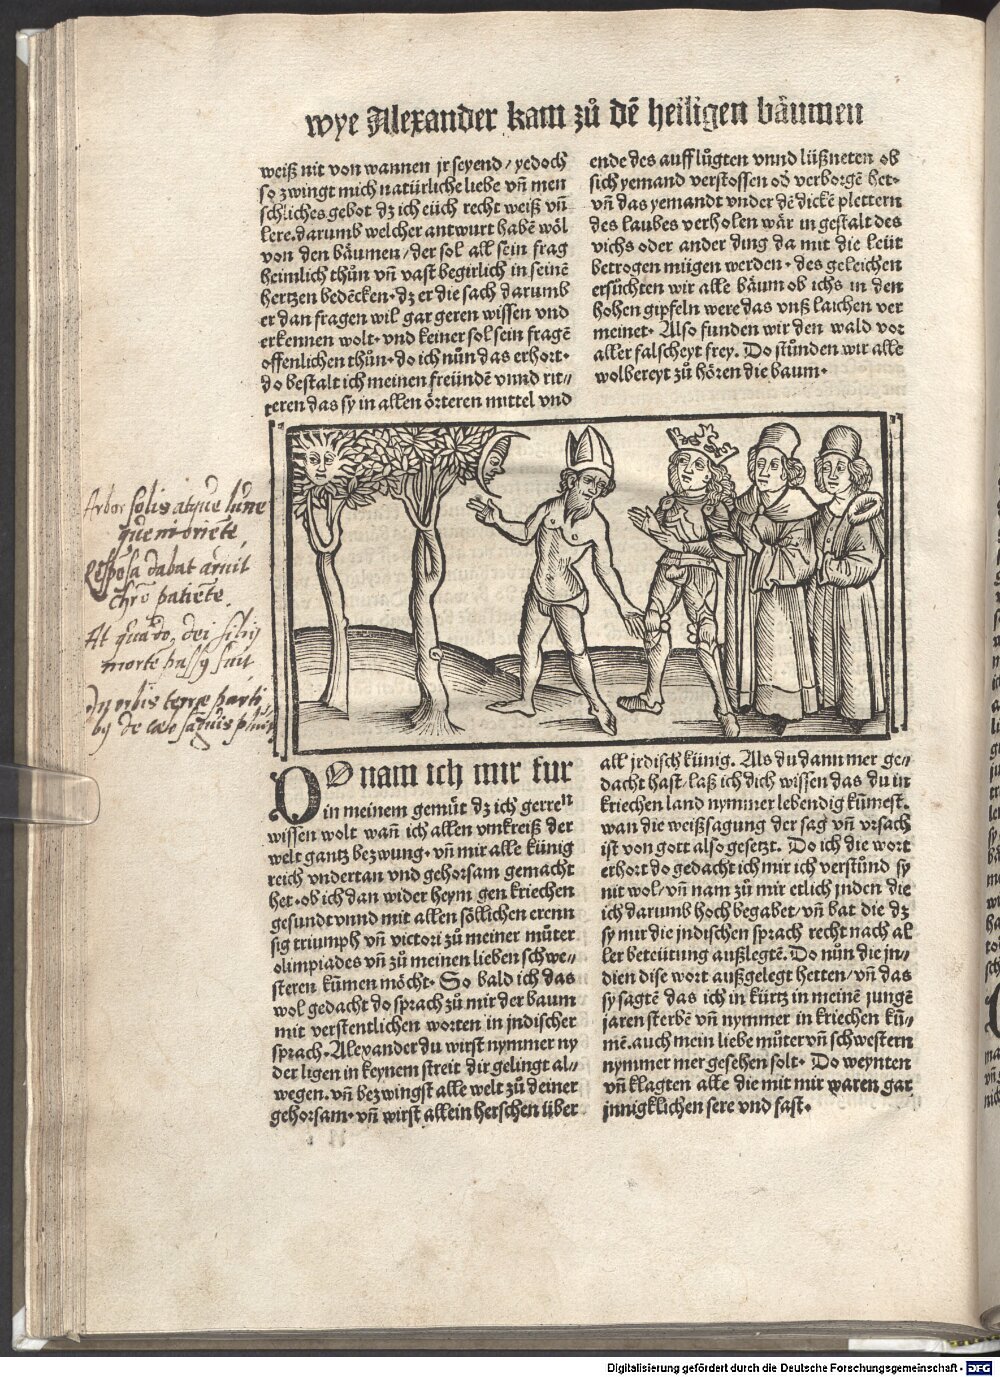 wye Alexander kam zů dē heiligen bäumen
weiß nit von wannen jr seyend/ yedoch
so zwingt mich natürliche liebe vn̄ men
schliches gebot dz ich eüch recht weiß vn̄
lere. darumb welcher antwurt habē wöl
von den bäumen/ der sol all sein frag
heimlich thůn vn̄ vast begirlich in seinē
hertzen bedēcken· dz er die sach darumb
er dan fragen wil gar geren wissen vnd
erkennen wolt· vnd keiner sol sein fragē
offenlichen thůn· do ich nůn das erhort·
do bestalt ich meinen freündē vnnd rit⸗
teren das sy in allen örteren mittel vnd
ende des auff lůgten vnnd lüßneten ob
sich yemand verstossen od̄ verborgē het·
vn̄ das yemandt vnder dē dickē plettern
des laubes verholen wär in gestalt des
vichs oder ander ding da mit die leüt
betrogen mügen werden· des geleichen
ersůchten wir alle bäum ob ichs in den
hohen gipfeln were das vnß laichen ver
meinet· Also funden wir den wald vor
aller falscheyt frey. Do stůnden wir alle
wolbereyt zů hören die baum·
Arbor solis atque lune
que in oriēte
Respōsa dabat
Chrō patiēte.
At quādo, dei filiꝰ
morte passꝰ fuit
In orbis terræ parti
bꝰ de cælo
DO nam ich mir fur
in meinem gemüt dz ich gerren
wissen wolt wan̄ ich allen vmkreiß der
welt gantz bezwung· vn̄ mir alle künig
reich vndertan vnd gehorsam gemacht
het· ob ich dan wider heym gen kriechen
gesundt vnnd mit allen söllichen erenn
sig triumph vn̄ victori zů meiner můter
olimpiades vn̄ zů meinen lieben schwe⸗
steren kůmen möcht· So bald ich das
wol gedacht do sprach zů mir der baum
mit verstentlichen worten in jndischer
sprach· Alexander du wirst nymmer ny
der ligen in keynem streit dir gelingt al⸗
wegen. vn̄ bezwingst alle welt zů deiner
gehorsam· vn̄ wirst allein herschen über
all jrdisch künig. Als du dann mer ge⸗
dacht hast/ laß ich dich wissen das du in
kriechen land nymmer lebendig kůmest.
wan die weißsagung der sag vn̄ vrsach
ist von gott also gesetzt. Do ich die wort
erhort do gedacht ich mir ich verstůnd sy
nit wol/ vn̄ nam zů mir etlich jnden die
ich darumb hoch begabet/ vn̄ bat die dz
sy mir die jndischen sprach recht nach al
ler beteütung außlegtē. Do nůn die jn⸗
dien dise wort außgelegt hetten/ vn̄ das
sy sagtē das ich in kürtz in meinē jungē
jaren sterbē vn̄ nymmer in kriechen kū⸗
mē. auch mein liebe můter vn̄ schwestern
nymmer mer gesehen solt· Do weynten
vn̄ klagten alle die mit mir waren gar
jnnigklichen sere vnd fast·
Digitalisierung gefördert durch die Deutsche Forschungsgemeinschaft - DFG